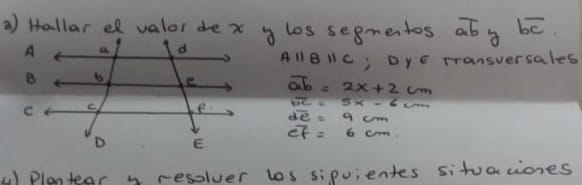 a) Hallar el valor de x y los segmentos ab y bc.
A a d A || B || C ; D y E transversales
B b e ab = 2x + 2 cm
bc = 5x - 6 cm
C c f. de = 9 cm
ef = 6 cm.
D E
4) Plantear y resolver los siguientes situaciones